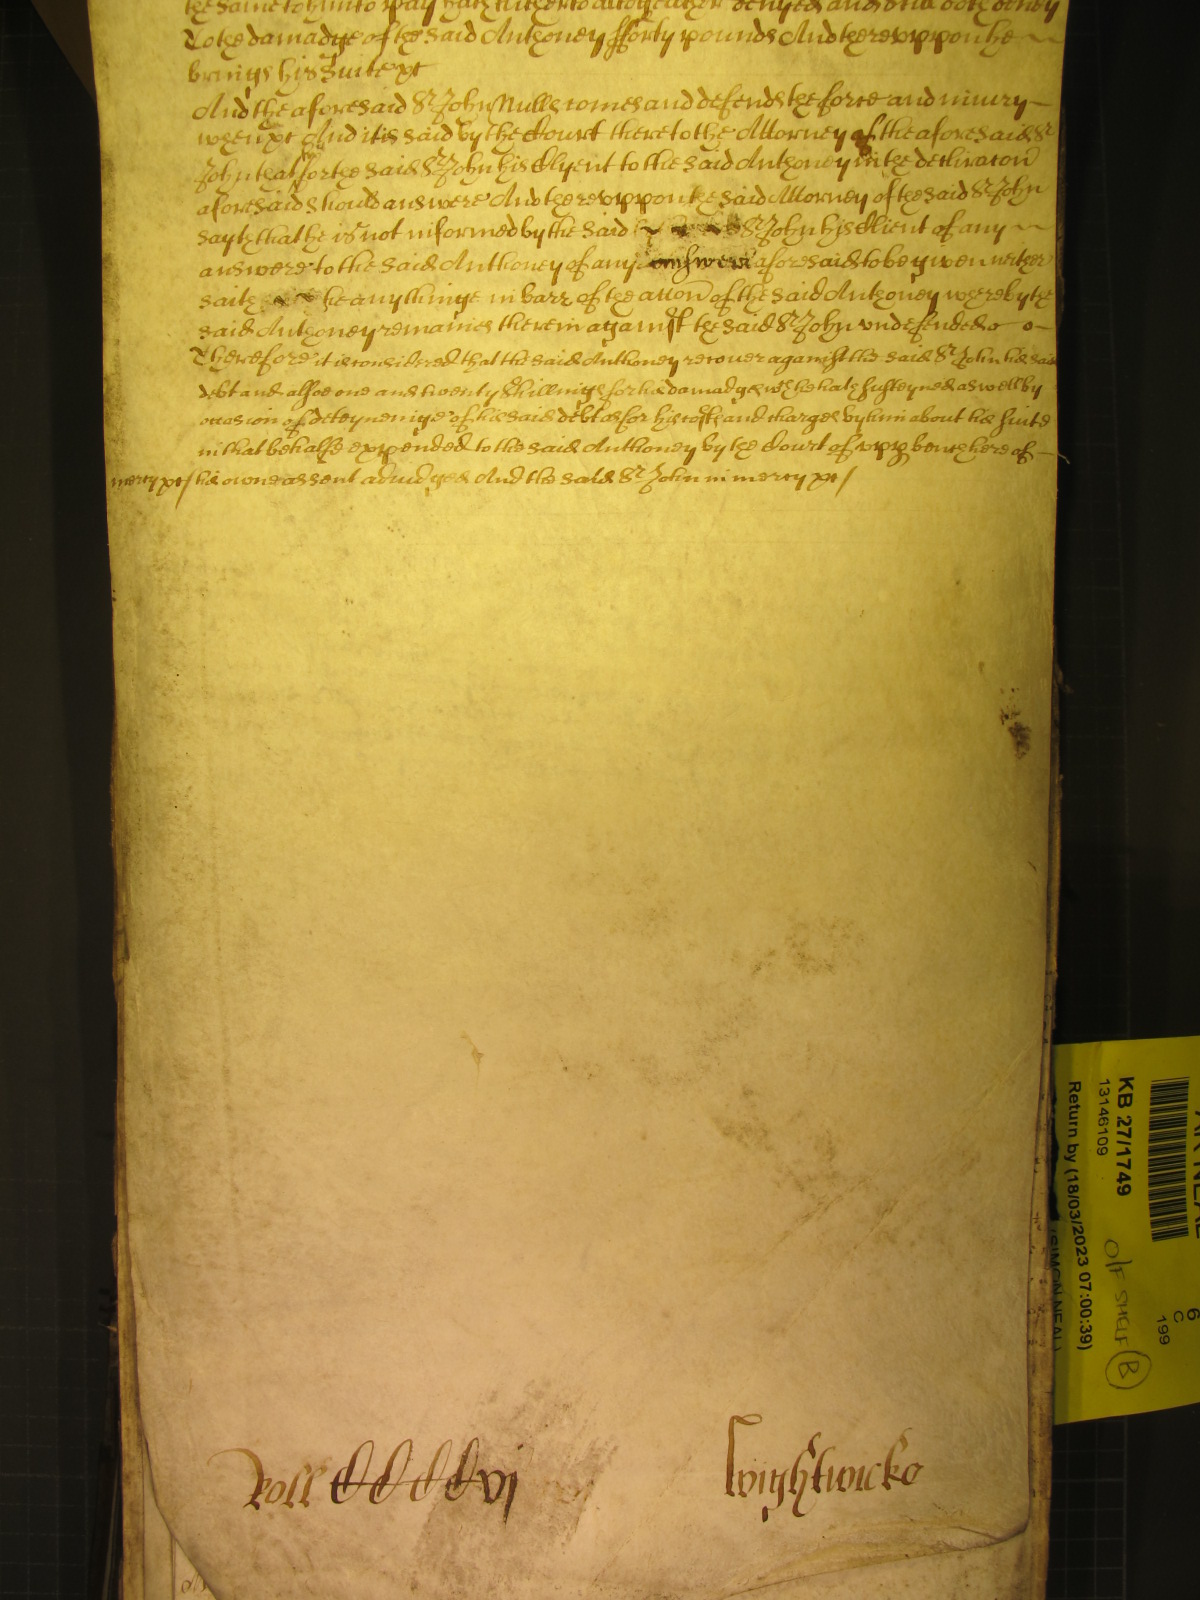 the same to him to pay hath hitherto altogeather denyed and still doth deny
To the damadge of the said Anthoney fforty pounds And thereuppon he
brings his suite &c
And the aforesaid Sr John Mills comes and defends the force and iniury
when &c And it is said by the Court there to the Attorney of the aforesaid Sr
John that for the said Sr John his Clyent to the said Anthoney in the declracon
aforesaid should answere And thereuppon the said Attorney of the said Sr John
sayth that he is not informed by the said Sr John his Client of any
answere to the said Anthoney of any answere aforesaid to be given neither
saith he any thinge in barr of the accon of the said Anthoney whereby the
said Anthoney remaines therein against the said Sr John undefended
Therefore it is considered that the said Anthoney recover against the said Sr John his said
debt and alsoe one and twenty shillings for his damadges wch he hath susteyned aswell by
occasion of deteyneinge of his said debt as for his costs and charges by him about his suite
in that behalfe expended to the said Anthoney by the Court of upp bench here of
mercy &c/ his owne assent adiudged And the said Sr John in mercy &c/
Roll CCCCvj
Wightwicke
KB 27/1749
13146109
Return by (18/03/2023 07:00:39)
(SIMON NEAL)
O/F SHELF B
6
C
199